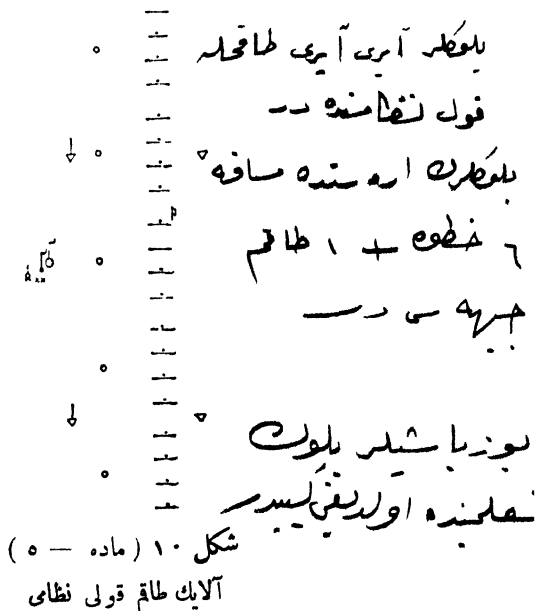 بلوكلر آيری آيری طاقمله
قول نظامنده در
بلوكلرك اره سنده مسافه
٦ خطوه + ١ طاقم
جبهه سی در
يوزباشيلر بلوك
اولديغی گبيدر
شكل ١٠ ( ماده — ٥ )
آلايك طاقم قولی نظامی